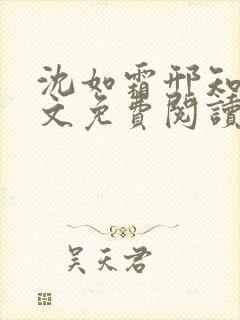 沈如霜邢知
文免費閱讀
吴天君